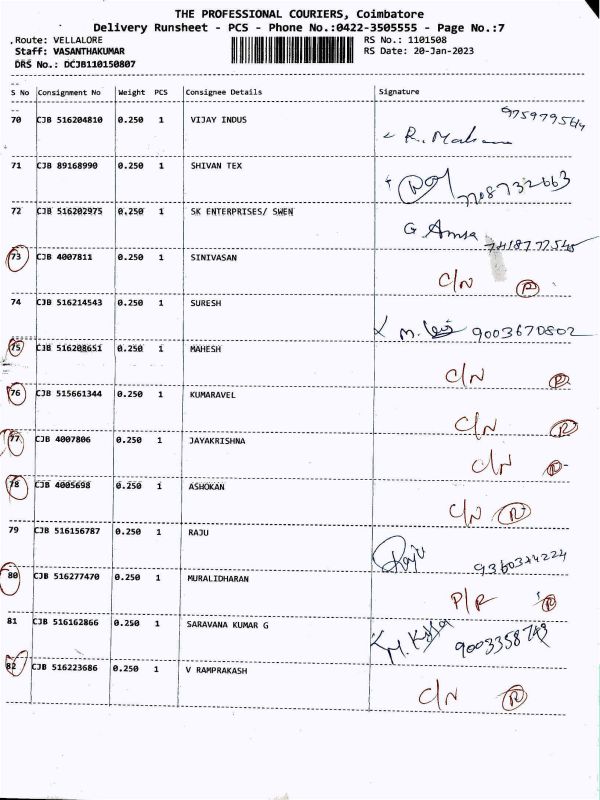 THE PROFESSIONAL COURIERS, Coimbatore
Delivery Runsheet - PCS - Phone No.:0422-3505555 - Page No.:7
Route: VELLALORE
RS No.: 1101508
Staff: VASANTHAKUMAR
RS Date: 20-Jan-2023
DRS No.: DCJB110150807
S No Consignment No Weight PCS Consignee Details Signature
70 CJB 516204810 0.250 1 VIJAY INDUS
R.
71 CJB 89168990 0.250 1 SHIVAN TEX
7708732663
72 CJB 516202975 0.250 1 SK ENTERPRISES/ SWEN
G Amsa
73 CJB 4007811 0.250 1 SINIVASAN
C/N R
74 CJB 516214543 0.250 1 SURESH
M. 9003670802
75 CJB 516208651 0.250 1 MAHESH
C/N R
76 CJB 515661344 0.250 1 KUMARAVEL
C/N R
77 CJB 4007806 0.250 1 JAYAKRISHNA
C/N R
78 CJB 4005698 0.250 1 ASHOKAN
C/N R
79 CJB 516156787 0.250 1 RAJU
Raju
80 CJB 516277470 0.250 1 MURALIDHARAN
P/R R
81 CJB 516162866 0.250 1 SARAVANA KUMAR G
M. 9003358743
82 CJB 516223686 0.250 1 V RAMPRAKASH
C/N R